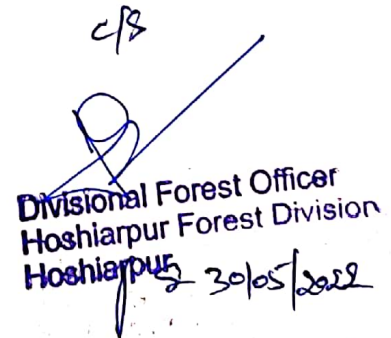 c/s
Divisional Forest Officer
Hoshiarpur Forest Division
Hoshiarpur
30/05/2022